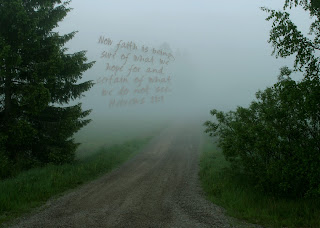 Now faith is being
sure of what we
hope for and
certain of what
we do not see.
Hebrews 11:1